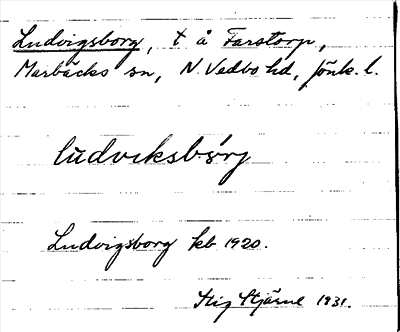 Ludvigsborg, t å Farstorp,
Marbäcks sn, N. Vedbo hd, Jönk. l.
lùdviksbórj
Ludvigsborg kb 1920.
Stig Stjärne 1931.